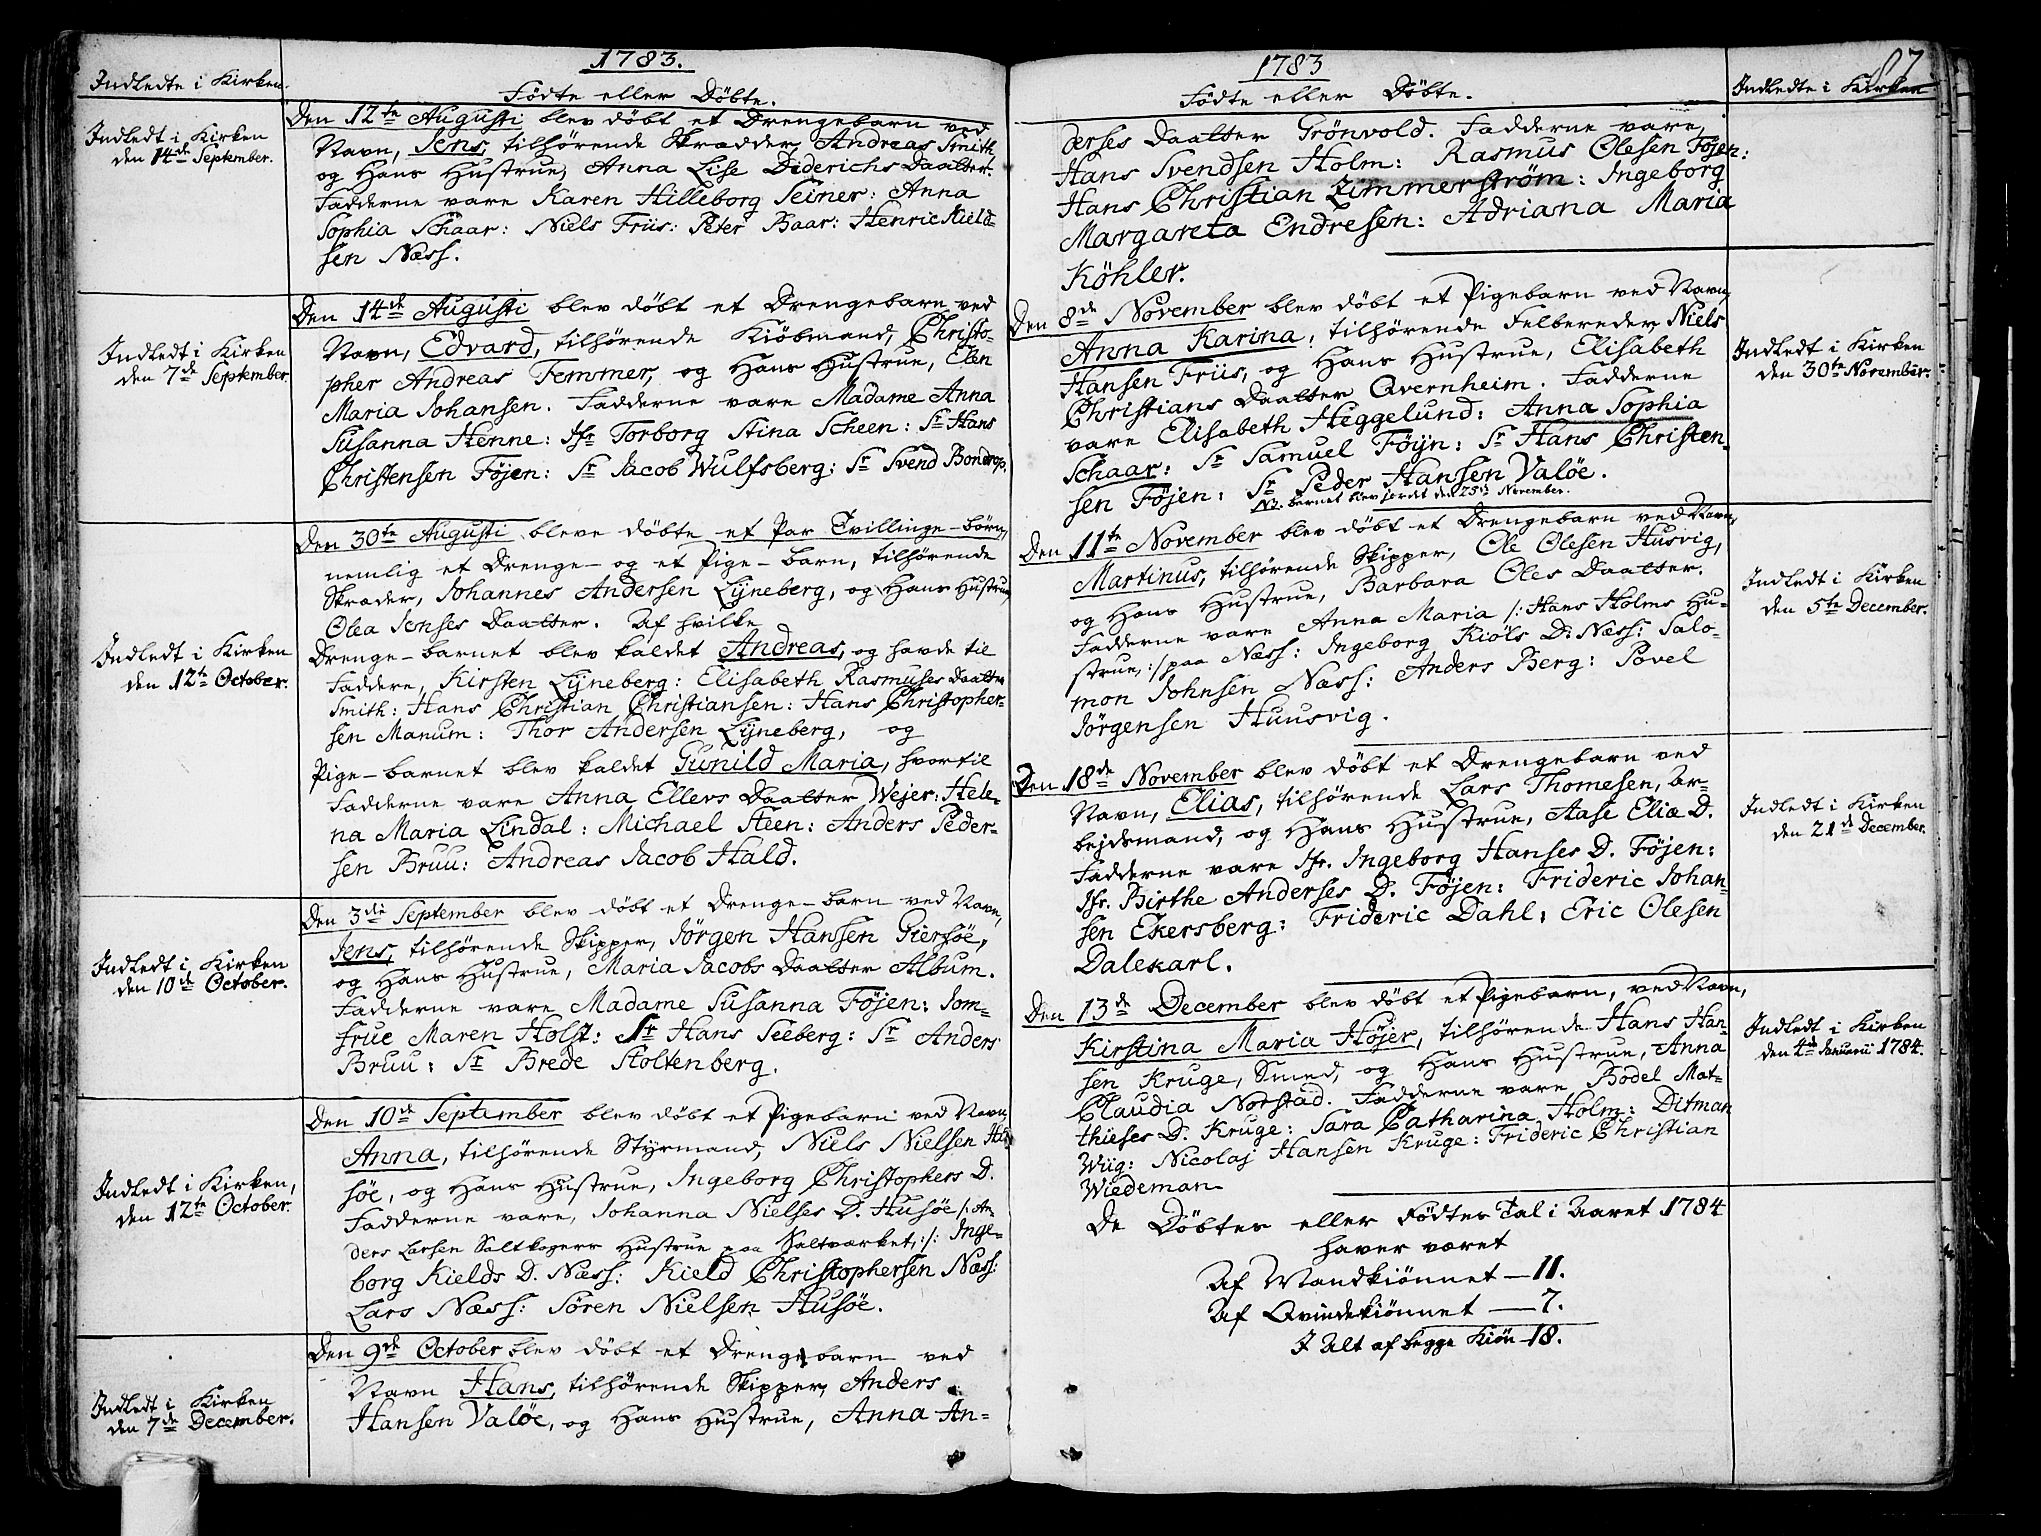 1783.
Indledte i Kirken.
Födte eller Döbte.
Den 12te Augusti blev döbt et Drengebarn ved
Navn, Jens, tilhörende Skrædder, Andreas Smith
og Hans Hustrue, Anna Lise Diderichs Daatter.
Fadderne vare Karen Hilleborg Seiner: Anna
Sophia Schaar: Niels Friis: Peter Baar: Henric Kield-
sen Næss.
Indledt i Kirken
den 14de September.
Den 14de Augusti blev döbt et Drengebarn ved
Navn, Edvard, tilhörende Kiöbmand, Christo-
pher Andreas Femmer, og Hans Hustrue, Elen
Maria Johansen. Fadderne vare Madame Anna
Susanna Henne: Jfr Torborg Stina Scheen: Sr Hans
Christensen Föjen: Sr Jacob Wulfsberg: Sr Svend Bondrop.
Indledt i Kirken
den 7de September.
Den 30te Augusti bleve döbte et Par Tvillinge-börn,
nemlig et Drenge- og et Pige-barn, tilhörende
Skræder, Johannes Andersen Lÿneberg, og Hans Hustrue,
Olea Jenses Daatter. Af hvilke
Drenge-barnet blev kaldet Andreas, og havde til
Faddere, Kirsten Lÿneberg: Elisabeth Rasmuses Daatter
Smith: Hans Christian Christiansen: Hans Christopher-
sen Manum: Thor Andersen Lÿneberg, og
Pige-barnet blev kaldet Gunild Maria, hvortil
Fadderne vare Anna Ellers Daatter Wejer: Hele-
na Maria Lindal: Michael Steen: Anders Peder-
sen Bruu: Andreas Jacob Hald.
Indledt i Kirken
den 12te October.
Den 3die September blev döbt et Drenge-barn ved Navn,
Jens, tilhörende Skipper, Jörgen Hansen Giersöe,
og Hans Hustrue, Maria Jacobs Daatter Album.
Fadderne vare Madame Susanna Föjen: Jom-
frue Maren Holst: Sr Hans Seeberg: Sr Anders
Bruu: Sr Brede Stoltenberg.
Indledt i Kirken
den 10de October.
Den 10de September blev döbt et Pigebarn ved Navn
Anna, tilhörende Stÿrmand, Niels Nielsen Hu-
söe, og Hans Hustrue, Ingeborg Christophers D.
Fadderne vare, Johanna Nielses D. Husöe /: An-
ders Larsen Saltkogers Hustrue paa Saltværket, :/: Inge-
borg Kields D. Næss: Kield Christophersen Næss:
Lars Næss: Sören Nielsen Husöe.
Indledt i Kirken,
den 12te October.
Den 9de October blev döbt et Drengebarn ved
Navn Hans, tilhörende Skipper, Anders
Hansen Valöe, og Hans Hustrue, Anna An-
Indledt i Kirken
den 7de December.
1783
Födte eller Döbte.
Indledte i Kirken
derses Daatter Grönvold. Fadderne vare,
Hans Svendsen Holm: Rasmus Olesen Föjen:
Hans Christian Zimmerström: Ingeborg
Margareta Endresen: Adriana Maria
Köhler.
Den 8de November blev döbt et Pigebarn ved Navn,
Anna Karina, tilhörende Felbereder, Niels
Hansen Friis, og Hans Hustrue, Elisabeth
Christians Daatter Qvernheim. Fadderne
vare Elisabeth Heggelund: Anna Sophia
Schaar: Sr Samuel Föÿn: Sr Hans Christen-
sen Föjen: Sr Peder Hansen Valöe.
NB. barnet blev jordet den 25de November.
Indledt i Kirken
den 30te November.
Den 11te November blev döbt et Drengebarn ved Navn,
Martinus, tilhörende Skipper, Ole Olesen Husvig,
og Hans Hustrue, Barbara Oles Daatter.
Fadderne vare Anna Maria /: Hans Holms Hu-
strue, :/ paa Næss: Ingeborg Kiöls D. Næss: Salo-
mon Johnsen Næss: Anders Berg: Povel
Jörgensen Huusvig.
Indledt i Kirken
den 5te December.
Den 18de November blev döbt et Drengebarn ved
Navn, Elias, tilhörende Lars Thomesen, Ar-
bejdsmand, og Hans Hustrue, Aase Eliæ D.
Fadderne vare Jfr. Ingeborg Hanses D. Föjen:
Jfr. Birthe Anderses D. Föjen: Frideric Johan-
sen Ekersberg: Frideric Dahl: Eric Olesen
Dalekarl.
Indledt i Kirken
den 21de December.
Den 13de December blev döbt et Pigebarn, ved Navn,
Kirstina Maria Höjer, tilhörende Hans Han-
sen Kruge, Smed, og Hans Hustrue, Anna
Claudia Norstad. Fadderne vare Bodel Mat-
thieses D. Kruge: Sara Catharina Holm: Ditman
Wiig: Nicolaj Hansen Kruge: Frideric Christian
Wiedeman.
Indledt i Kirken
den 4de Januarii 1784.
De Döbtes eller Födtes Tal i Aaret 1784
haver været
Af Mandkiönnet — 11.
Af Qvindekiönnet — 7.
I Alt af begge Kiön 18.